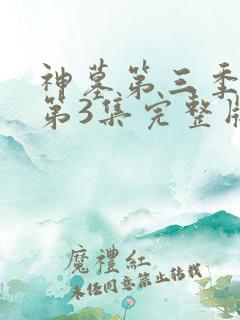 神墓第三季
第3集完整版
魔禮紅
未经同意禁止转载